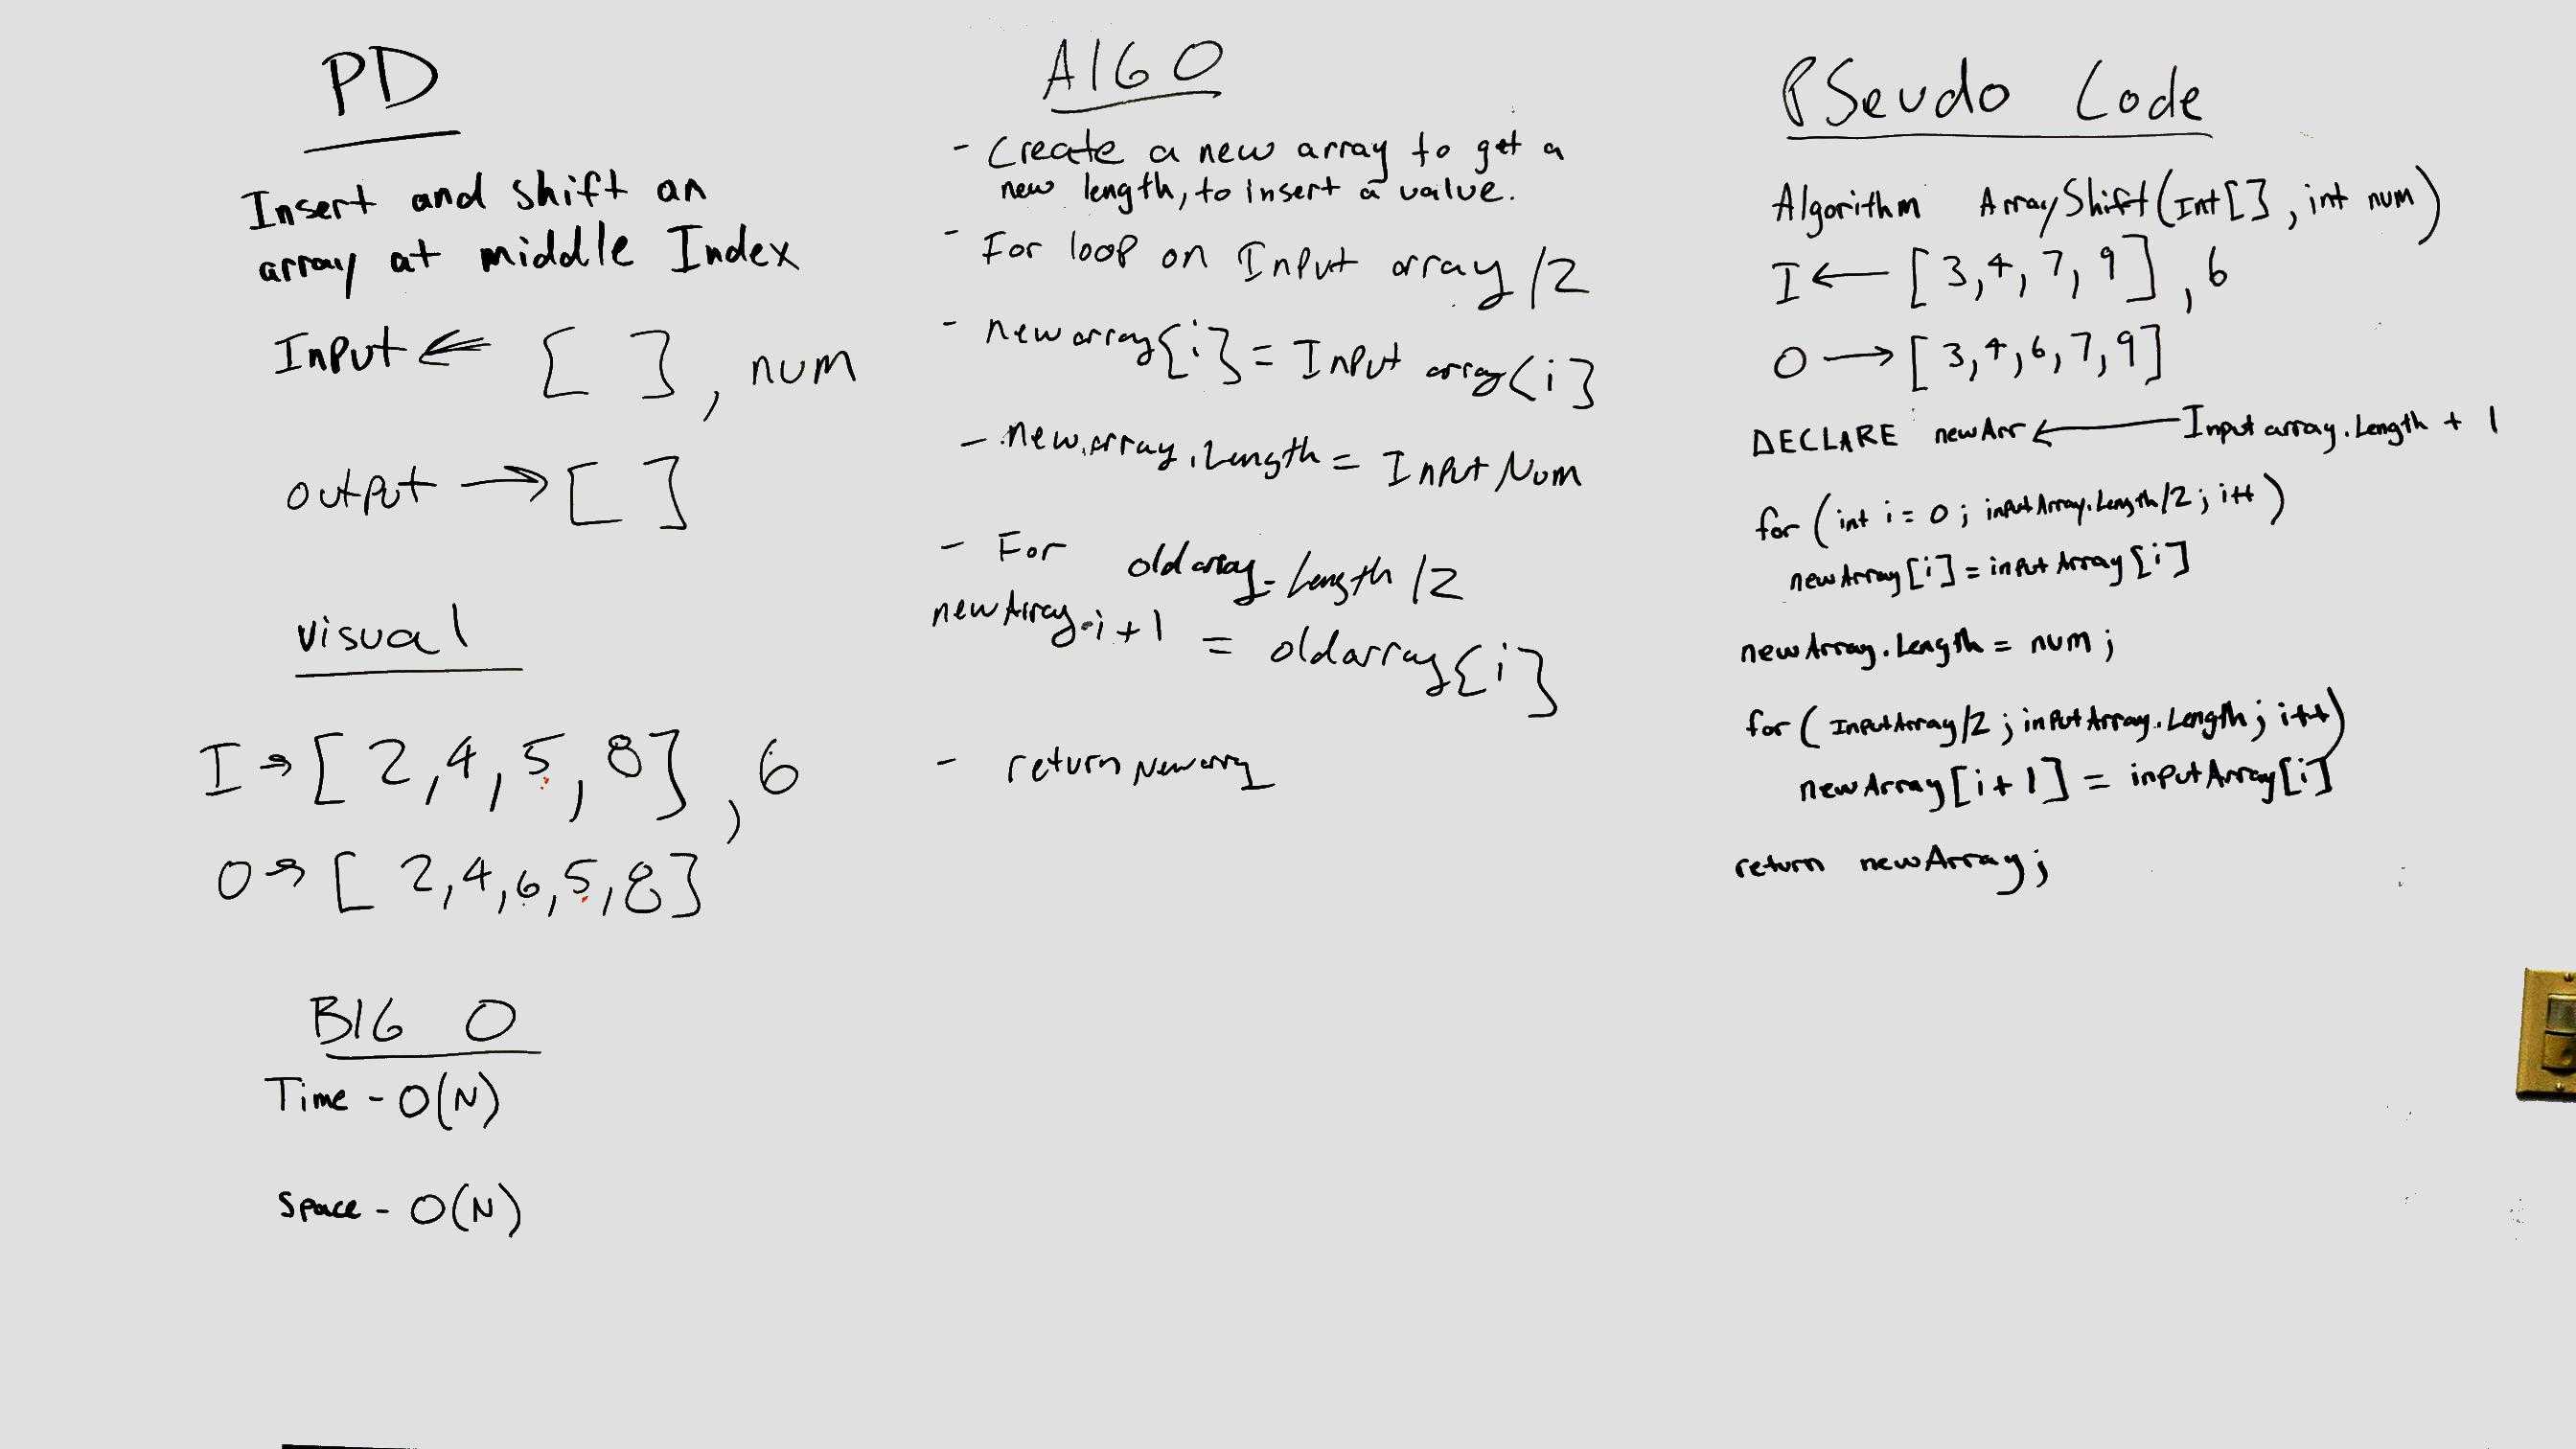 PD
Insert and shift an
array at middle Index
Input ← [ ] , num
output → [ ]
visual
I → [ 2, 4, 5, 8 ] , 6
O → [ 2, 4, 6, 5, 8 ]
BIG O
Time - O(N)
Space - O(N)
AlGO
- Create a new array to get a
new length, to insert a value.
- For loop on Input array /2
- new array[i] = Input array[i]
- new.array.Length = Input Num
- For oldarray.Length /2
newArray.i+1 = oldarray[i]
- return Newarry
PSeudo Code
Algorithm ArrayShift(Int[], int num)
I ← [3, 4, 7, 9] , 6
O → [3, 4, 6, 7, 9]
DECLARE newArr ← Input array.Length + 1
for (int i = 0; inputArray.Length/2; i++)
newArray[i] = inputArray[i]
newArray.Length = num;
for (InputArray/2; inputArray.Length; i++)
newArray[i+1] = inputArray[i]
return newArray;